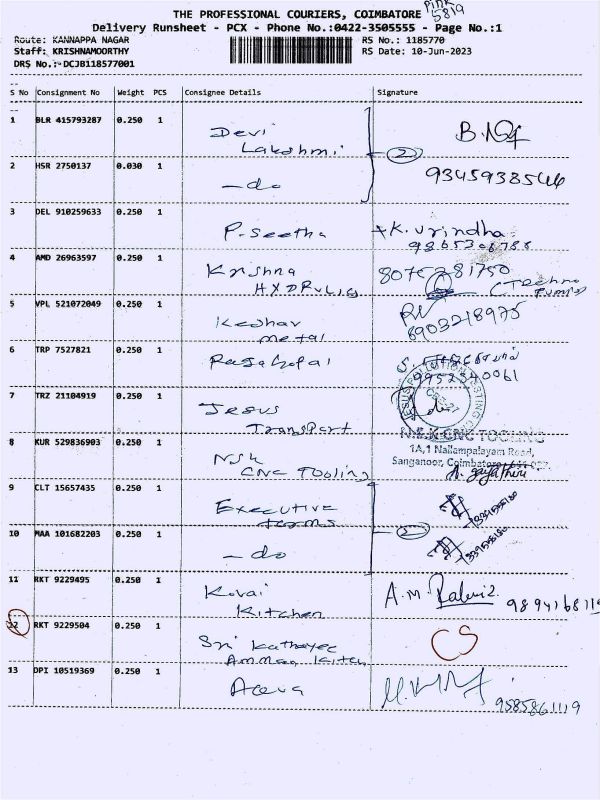 THE PROFESSIONAL COURIERS, COIMBATORE
5819
Delivery Runsheet - PCX - Phone No.:0422-3505555 - Page No.:1
Route: KANNAPPA NAGAR RS No.: 1185770
Staff: KRISHNAMOORTHY RS Date: 10-Jun-2023
DRS No.:-DCJB118577001
S No Consignment No Weight PCS Consignee Details Signature
1 BLR 415793287 0.250 1 Devi
Lakshmi
2
2 HSR 2750137 0.030 1 -do 9345938544
3 DEL 910259633 0.250 1 P. Seetha K. Vrindha
4 AMD 26963597 0.250 1 Krishna
(Techno
5 VPL 521072049 0.250 1 Keshav 8903218975
metal
6 TRP 7527821 0.250 1 Rajagopal
9952540061
7 TRZ 21104919 0.250 1 Jesus
Transport
N.S.K CNC TOOLING
1A,1 Nallampalayam Road,
8 KUR 529836903 0.250 1 NSK
CNC Tooling
Sanganoor, Coimbatore
9 CLT 15657435 0.250 1 Executive
2
10 MAA 101682203 0.250 1 -do
11 RKT 9229495 0.250 1 Kovai
Kitchen
A.M.
12 RKT 9229504 0.250 1 Sri
Amman
CS
13 DPI 10519369 0.250 1
9585861119